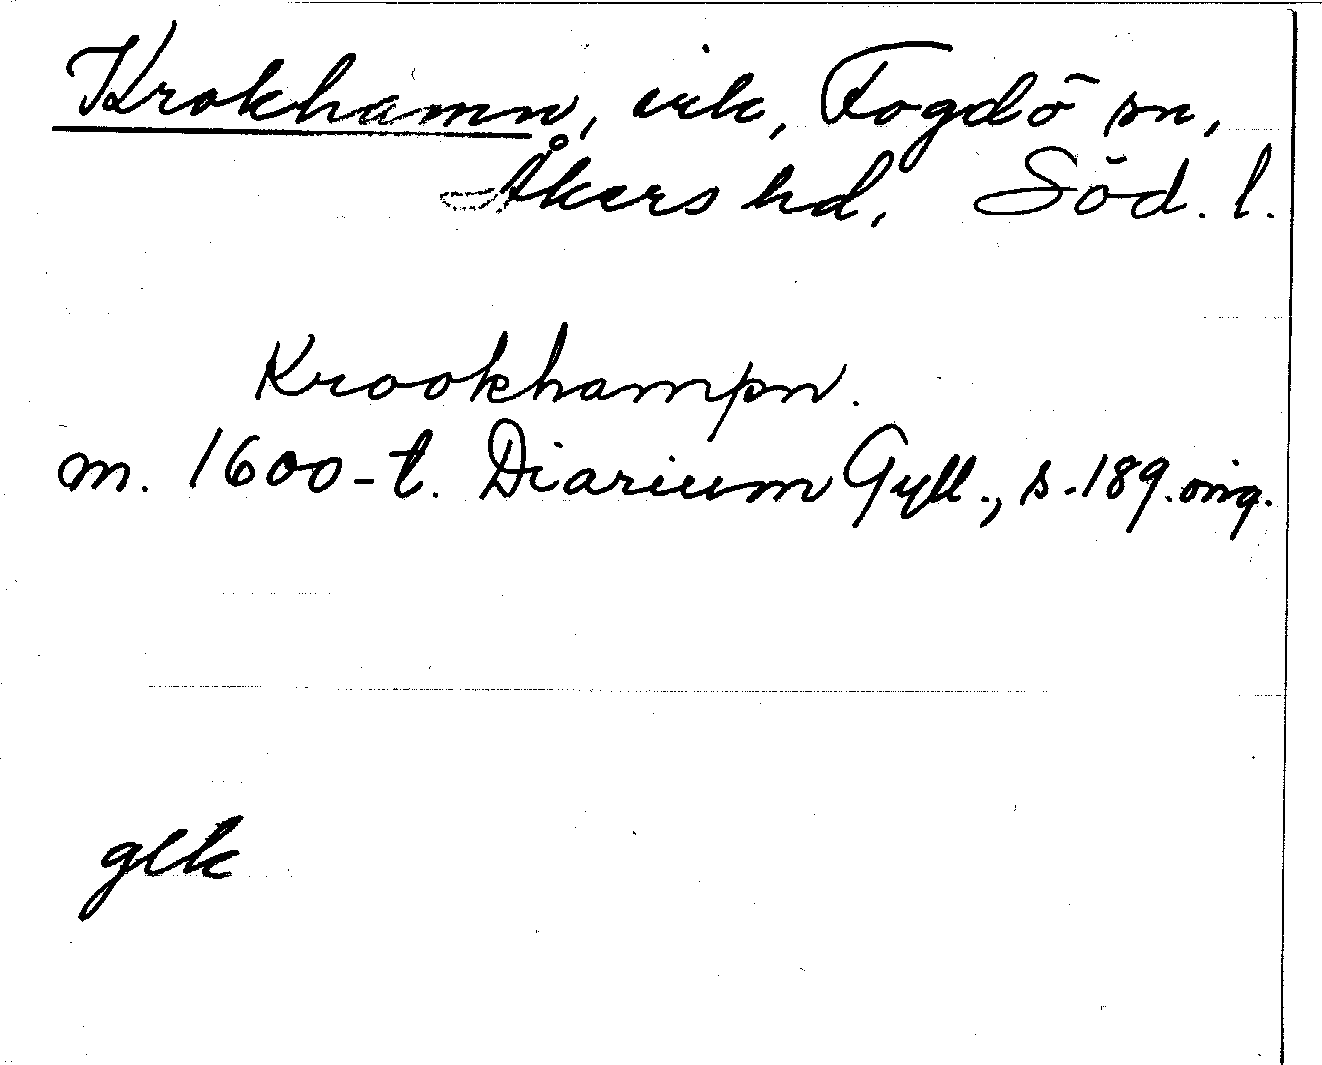 Krokhamn, vik, Fogdö sn,
Åkers hd, Söd. l.
Krookhampn.
m. 1600-t. Diarium Gyll., s. 189. orig.
glk